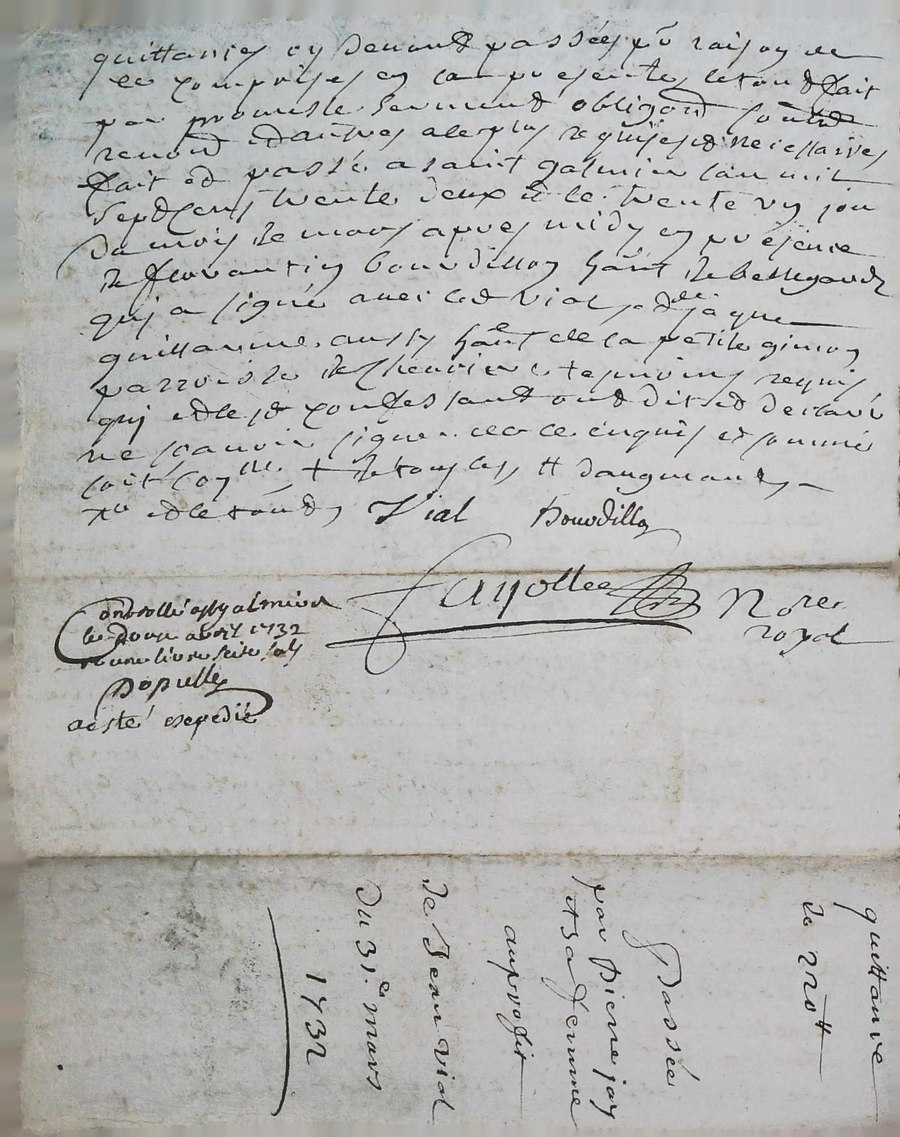 quittances cy devant passées po raison de
ce comprises en la presente, le tout fait
par promesse serment obligaon soub
renon et autres a ce plus requises et necessaires
fait et passé a saint galmier lan mil
sept cens trente deux et le trente un jour
du mois de mars apres midy en presence
de florantin bourdillon hant de bellegarde
qui a signé avec led vial et de jaque
guillaume aussy hant de la petite gimon
parroisse de Chevriere tesmoins requis
qui et lesd confessant ont dit et declaré
ne scavoir signer de ce enquis et sommé
soit conllé + de tous les tt daugmant
et le tout Vial Bourdillon
fayolle Nore
royal
Controllé a st galmier
le douze avril 1732
livre seize sols
Dopulle
a esté expedié
quittance
de 270tt
Passée
par Pierre jay
et sa femme
au profit
de Jean vial
du 31e mars
1732